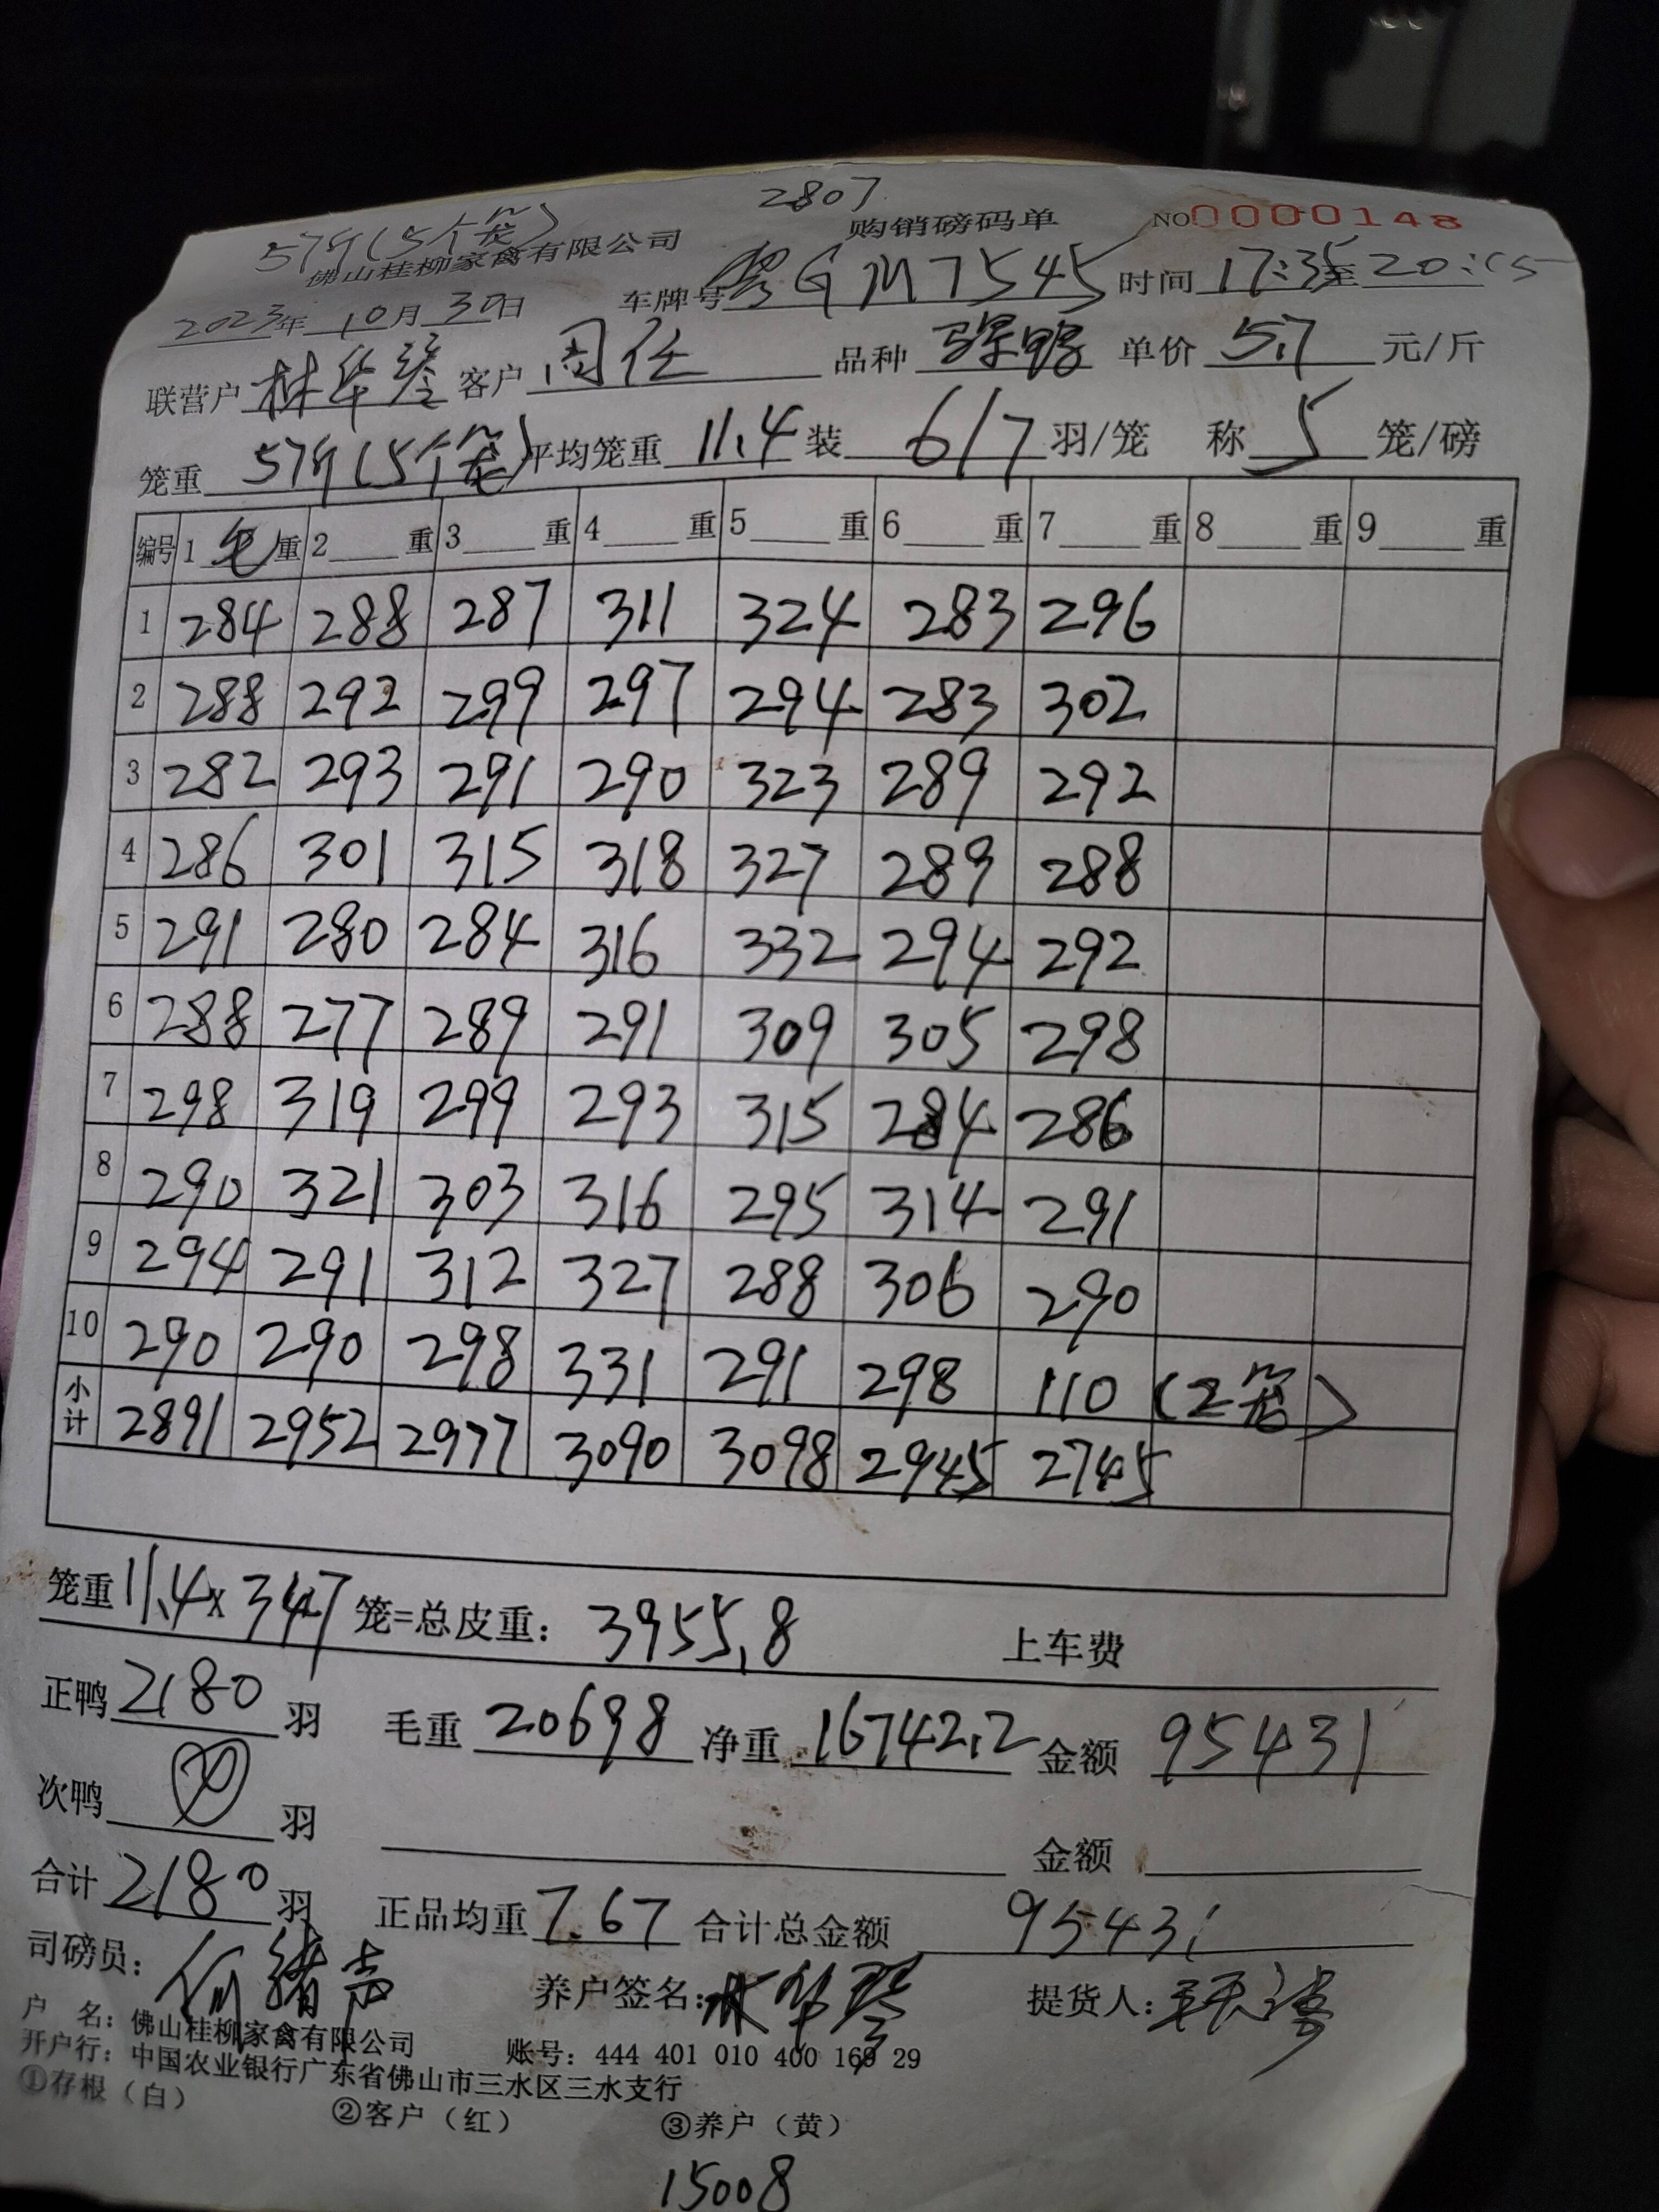 2807
57斤(5个笼)
佛山桂柳家禽有限公司 购销磅码单 NO0000148
2023年10月30日 车牌号粤GM7545 时间17:35至20:05
联营户林华琴 客户周任 品种骡鸭 单价5.7元/斤
笼重57斤(5个笼) 平均笼重11.4 装6/7羽/笼 称5笼/磅
编号 1毛重 2重 3重 4重 5重 6重 7重 8重 9重
1 284 288 287 311 324 283 296
2 288 292 299 297 294 283 302
3 282 293 291 290 323 289 292
4 286 301 315 318 327 289 288
5 291 280 284 316 332 294 292
6 288 277 289 291 309 305 298
7 298 319 299 293 315 284 286
8 290 321 303 316 295 314 291
9 294 291 312 327 288 306 290
10 290 290 298 331 291 298 110(2笼)
小计 2891 2952 2977 3090 3098 2945 2745
笼重11.4×347笼=总皮重:3955.8 上车费
正鸭2180羽 毛重20698 净重16742.2 金额95431
次鸭 羽 金额
合计2180羽 正品均重7.67 合计总金额95431
司磅员: 养户签名:林华琴 提货人:
户 名:佛山桂柳家禽有限公司 账号:444 401 010 400 169 29
开户行:中国农业银行广东省佛山市三水区三水支行
①存根(白) ②客户(红) ③养户(黄)
15008